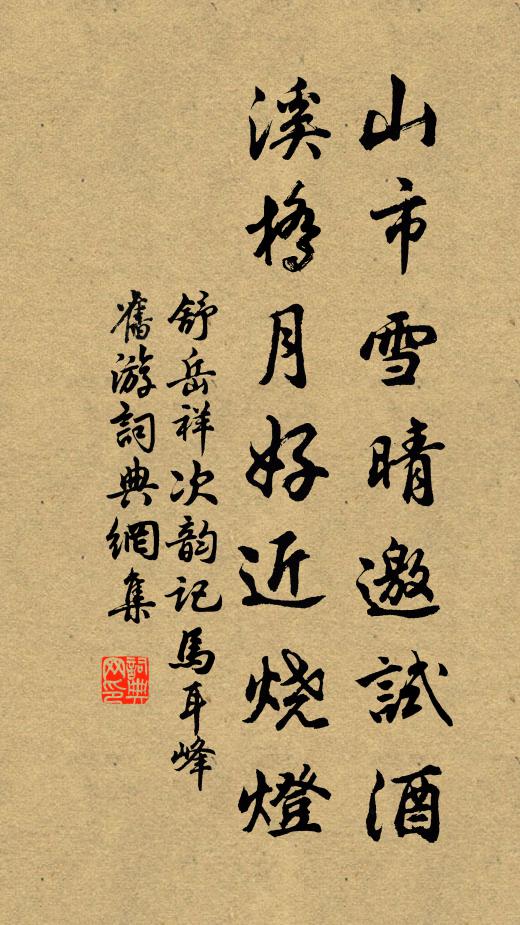 山市雪晴邀試酒
溪橋月好近燒燈
舒岳祥次韵記馬耳峰
舊游詞典網集
詞典网印